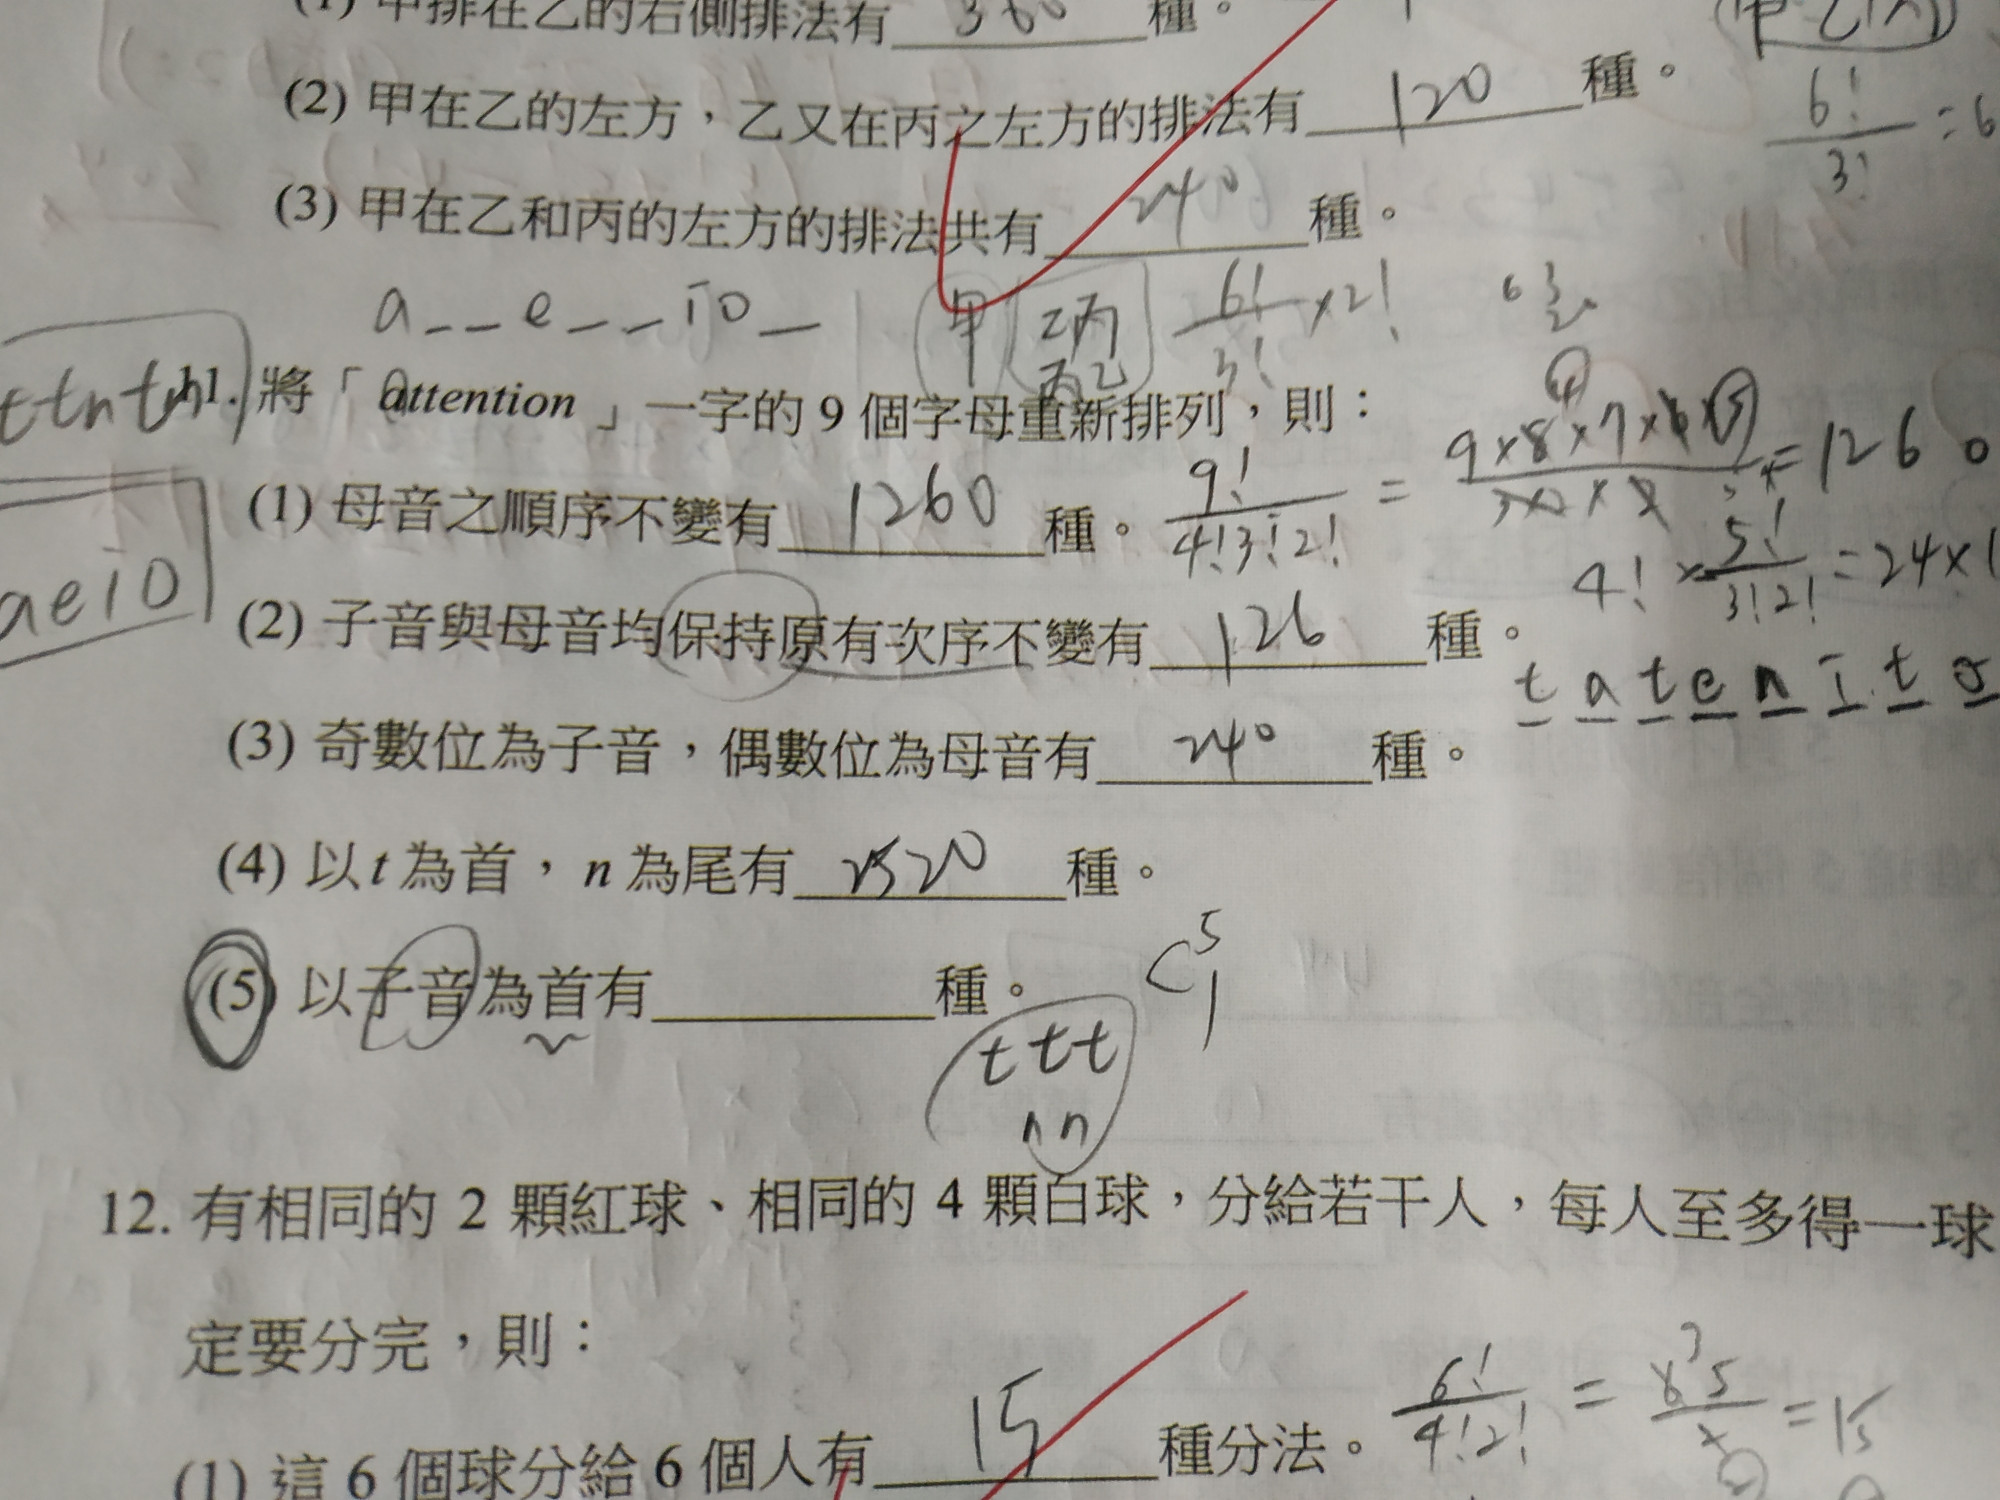 (1) 甲排在乙的右側排法有 360 種。
(2) 甲在乙的左方，乙又在丙之左方的排法有 120 種。
6!
3!
= 6
(3) 甲在乙和丙的左方的排法共有 240 種。
a _ _ e _ _ i o _
甲 乙丙 6! × 2!
丙乙 3!
ttntn
11. 將「attention」一字的 9 個字母重新排列，則：
(1) 母音之順序不變有 1260 種。
9!
4!3!2!
= 9×8×7×6×5
= 1260
aeio
4! × 5! = 24×1
3!2!
(2) 子音與母音均保持原有次序不變有 126 種。
t a t e n i t o
(3) 奇數位為子音，偶數位為母音有 240 種。
(4) 以 t 為首，n 為尾有 2520 種。
(5) 以子音為首有 種。
C 5 1
t t t
n n
12. 有相同的 2 顆紅球、相同的 4 顆白球，分給若干人，每人至多得一球
定要分完，則：
(1) 這 6 個球分給 6 個人有 15 種分法。
6!
4!2!
= 15